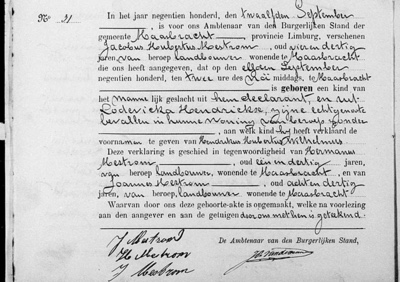 No 21
In het jaar negentien honderd, den twaalfden September
, is voor ons Ambtenaar van den Burgerlijken Stand der
gemeente Maasbracht, provincie Limburg, verschenen
Jacobus Hubertus Mestrom, oud vierendertig
jaren, van beroep landbouwer wonende te Maasbracht
die ons heeft aangegeven, dat op den elfden September
negentien honderd, ten twee ure des Na middags, te Maasbracht
is geboren een kind van
het mannelijk geslacht uit hem declarant, en uit
Hendrickx, zijne echtgenoote
bevallen in hunne woning van beroep zonder
, aan welk kind hij heeft verklaard de
voornamen te geven van Hendrikus Hubertus Wilhelmus.
Deze verklaring is geschied in tegenwoordigheid van Hermanus
Mestrom, oud eenendertig jaren,
van beroep landbouwer, wonende te Maasbracht, en van
Joannes Mestrom, oud achtendertig
jaren, van beroep landbouwer wonende te Maasbracht
Waarvan door ons deze geboorte-akte is opgemaakt, welke na voorlezing
aan den aangever en aan de getuigen door ons met hen is geteekend.
De Ambtenaar van den Burgerlijken Stand,
J Mestrom
H Mestrom
J Mestrom